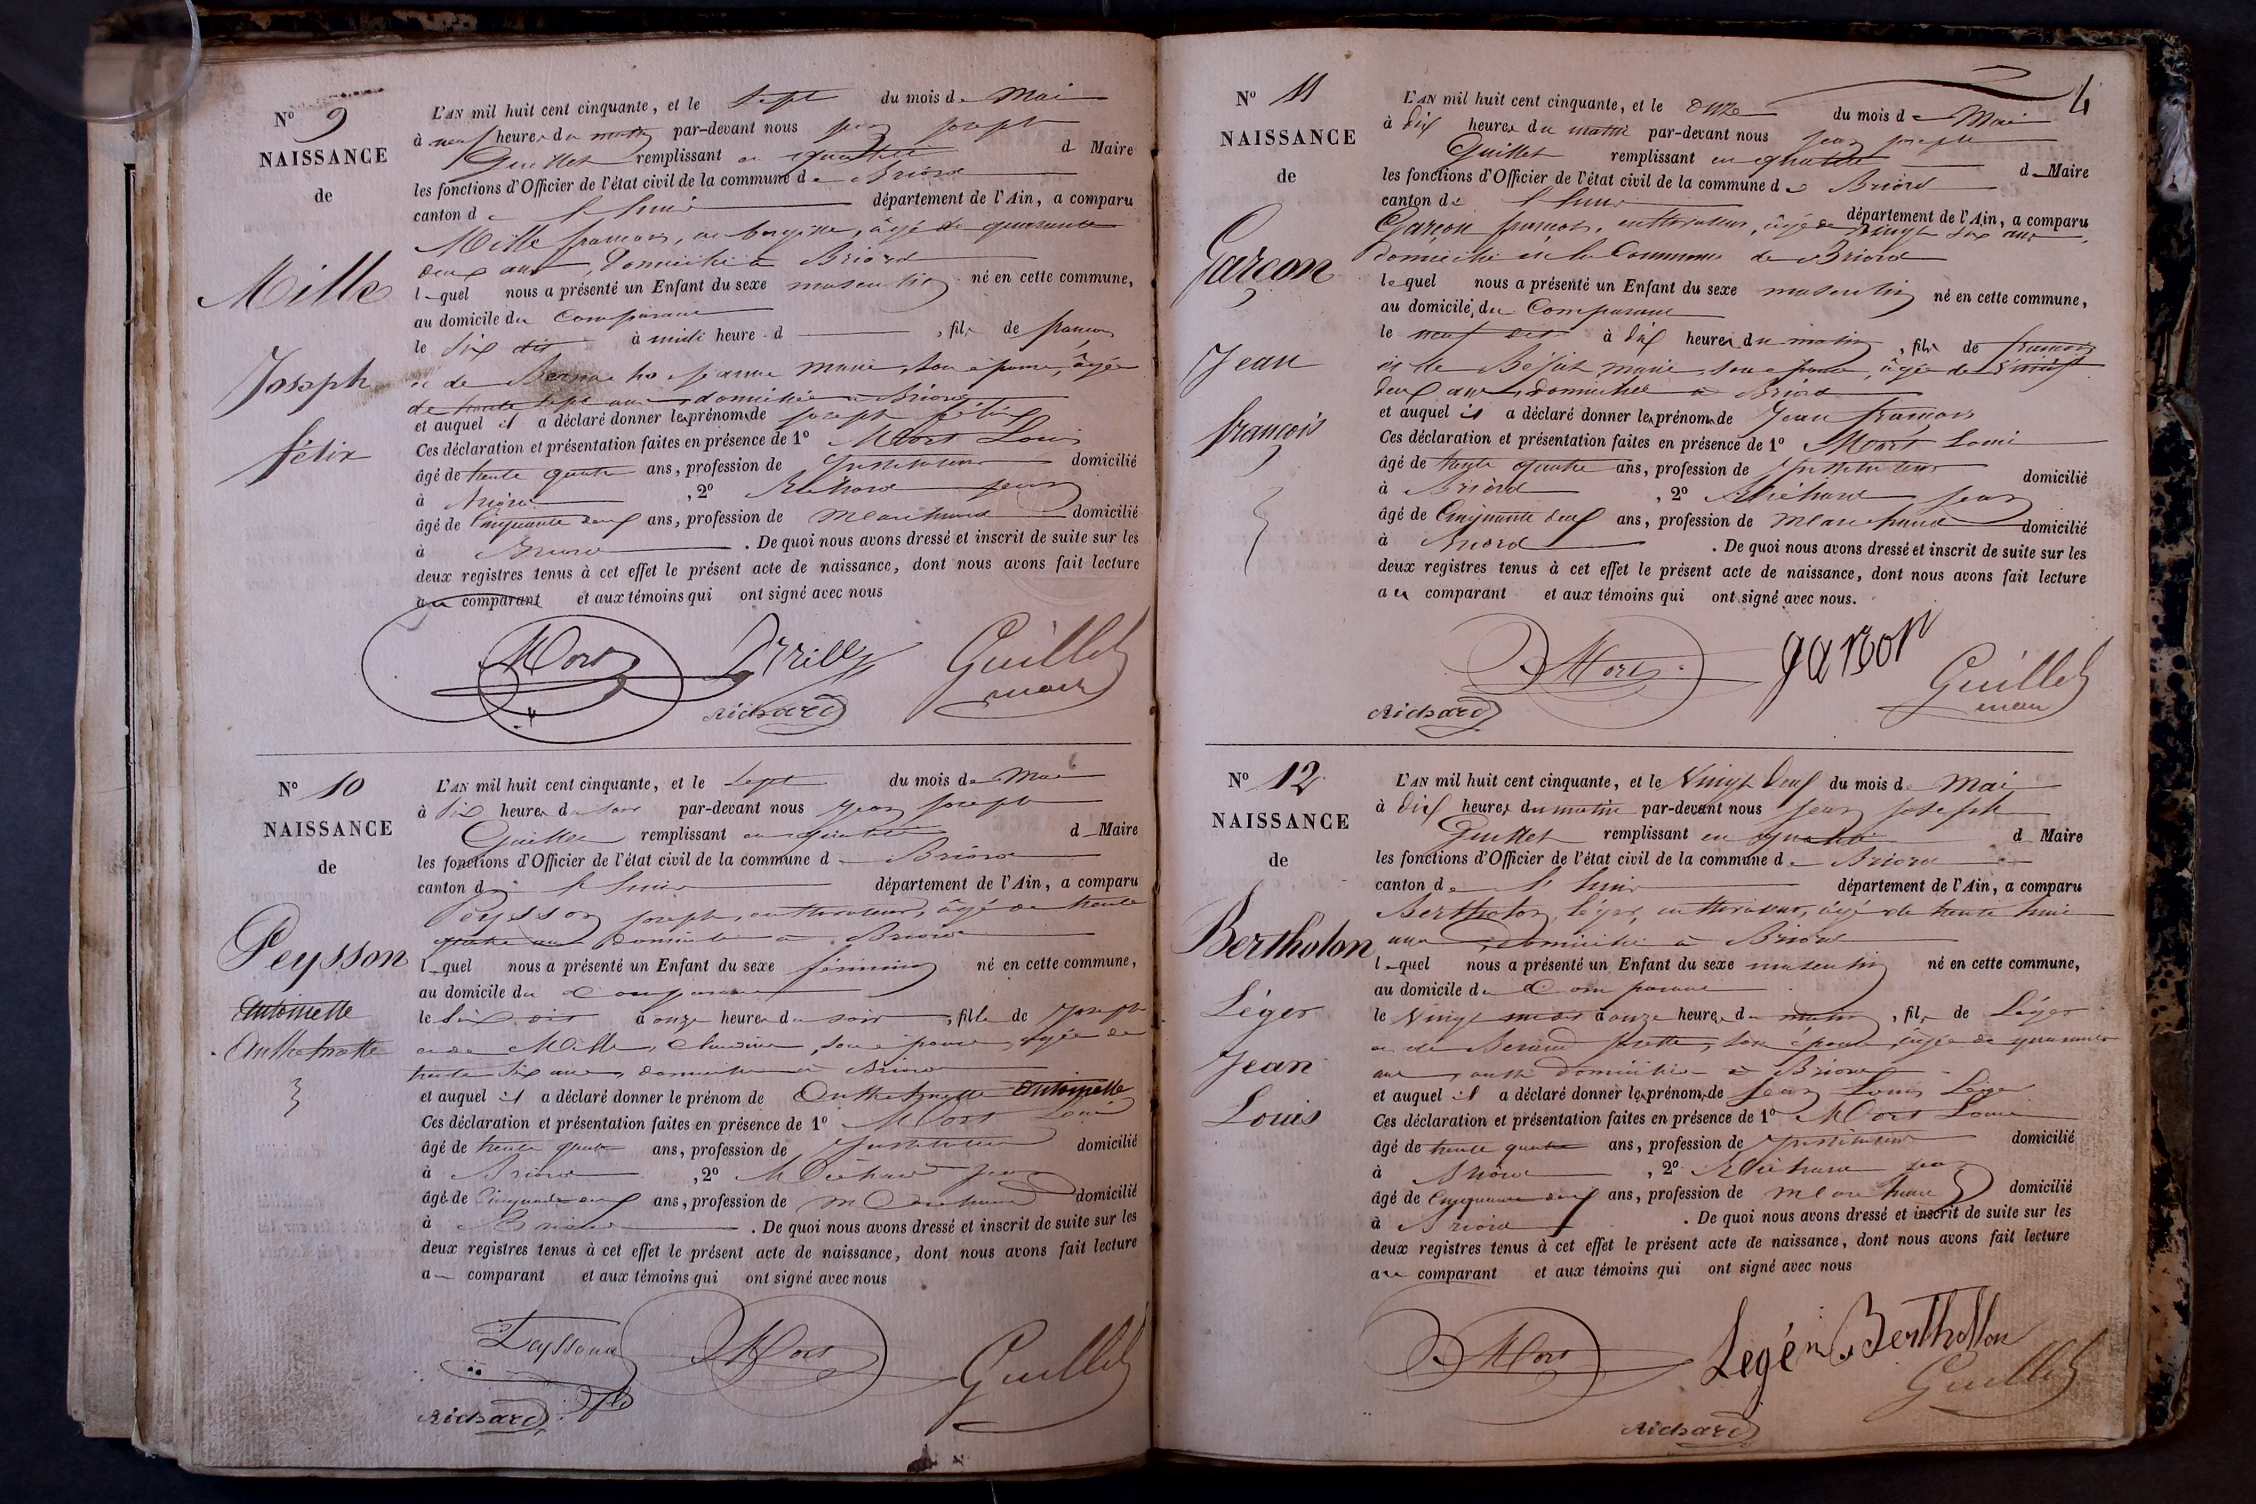 Nº 9
NAISSANCE
de
Mille
Joseph
félix
L'AN mil huit cent cinquante, et le Sept du mois de Mai
à neuf heures du matin par-devant nous jean joseph
Guillet remplissant en qualité d Maire
les fonctions d'Officier de l'état civil de la commune de Briord
canton d département de l'Ain, a comparu
Mille françois, âgé de quarante
deux ans, domicilié à Briord
lequel nous a présenté un Enfant du sexe masculin né en cette commune,
au domicile du Comparant
le Six dit à midi heure d , fils de françois
et de jeanne marie, son épouse, âgée
de trente sept ans, domiciliée à Briord
et auquel il a déclaré donner les prénoms de joseph félix
Ces déclaration et présentation faites en présence de 1º Mort Louis
âgé de trente quatre ans, profession de Instituteur domicilié
à Briord , 2º Richard jean
âgé de Cinquante deux ans, profession de Marchand domicilié
à Briord . De quoi nous avons dressé et inscrit de suite sur les
deux registres tenus à cet effet le présent acte de naissance, dont nous avons fait lecture
au comparant et aux témoins qui ont signé avec nous
Mort Mille Guillet
maire
Richard
Nº 10
NAISSANCE
de
Peysson
Antoinette
Anthelmette
L'AN mil huit cent cinquante, et le Sept du mois de Mai
à Six heures du soir par-devant nous jean joseph
Guillet remplissant en qualité d Maire
les fonctions d'Officier de l'état civil de la commune d Briord
canton d département de l'Ain, a comparu
Peysson joseph, cultivateur, âgé de trente
quatre ans domicilié à Briord
lequel nous a présenté un Enfant du sexe féminin né en cette commune,
au domicile du Comparant
le Six dit à onze heures du soir , fille de joseph
et de Mille, Claudine, son épouse, âgée de
trente Six ans, domiciliée à Briord
et auquel il a déclaré donner le prénom de Anthelmette Antoinette
Ces déclaration et présentation faites en présence de 1º Mort Louis
âgé de trente quatre ans, profession de Instituteur domicilié
à Briord , 2º Richard jean
âgé de Cinquante deux ans, profession de Marchand domicilié
à Briord . De quoi nous avons dressé et inscrit de suite sur les
deux registres tenus à cet effet le présent acte de naissance, dont nous avons fait lecture
au comparant et aux témoins qui ont signé avec nous
Mort Guillet
Richard
4
Nº 11
NAISSANCE
de
Garçon
Jean
françois
L'AN mil huit cent cinquante, et le onze du mois de Mai
à dix heures du matin par-devant nous jean joseph
Guillet remplissant en qualité d Maire
les fonctions d'Officier de l'état civil de la commune de Briord
canton de département de l'Ain, a comparu
Garçon françois, cultivateur, âgé de vingt six ans,
domicilié en la Commune de Briord
lequel nous a présenté un Enfant du sexe masculin né en cette commune,
au domicile du Comparant
le neuf dit à dix heures du matin , fils de françois
et de marie, son épouse, âgée de vingt
deux ans, domiciliée à Briord
et auquel il a déclaré donner les prénoms de Jean françois
Ces déclaration et présentation faites en présence de 1º Mort Louis
âgé de trente quatre ans, profession de Instituteur domicilié
à Briord , 2º Richard jean
âgé de Cinquante deux ans, profession de Marchand domicilié
à Briord . De quoi nous avons dressé et inscrit de suite sur les
deux registres tenus à cet effet le présent acte de naissance, dont nous avons fait lecture
au comparant et aux témoins qui ont signé avec nous.
Mort garson Guillet
maire
Richard
Nº 12
NAISSANCE
de
Bertholon
Léger
Jean
Louis
L'AN mil huit cent cinquante, et le Vingt deux du mois de Mai
à dix heures du matin par-devant nous jean joseph
Guillet remplissant en qualité d Maire
les fonctions d'Officier de l'état civil de la commune de Briord
canton de département de l'Ain, a comparu
Bertholon, léger, cultivateur, âgé de trente huit
ans domicilié à Briord
lequel nous a présenté un Enfant du sexe masculin né en cette commune,
au domicile du Comparant
le Vingt à onze heures du matin , fils de Léger
et de son épouse, âgée de quarante
ans, domiciliée à Briord
et auquel il a déclaré donner les prénoms de Jean Louis Léger
Ces déclaration et présentation faites en présence de 1º Mort Louis
âgé de trente quatre ans, profession de Instituteur domicilié
à Briord , 2º Richard jean
âgé de Cinquante deux ans, profession de Marchand domicilié
à Briord . De quoi nous avons dressé et inscrit de suite sur les
deux registres tenus à cet effet le présent acte de naissance, dont nous avons fait lecture
au comparant et aux témoins qui ont signé avec nous
Mort Legé Bertholon
Guillet
Richard